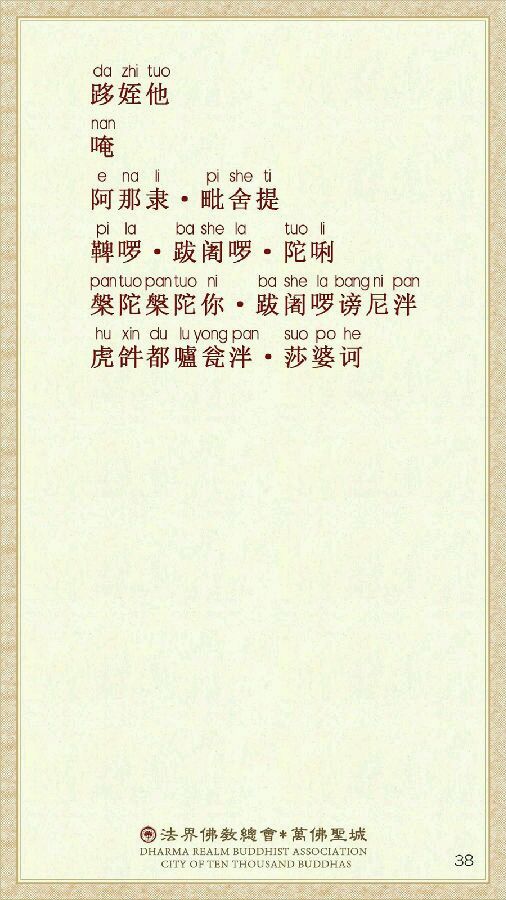 da zhi tuo
跢姪他
nan
唵
e na li pi she ti
阿那隶·毗舍提
pi la ba she la tuo li
鞞啰·跋阇啰·陀唎
pan tuo pan tuo ni ba she la bang ni pan
槃陀槃陀你·跋阇啰谤尼泮
hu xin du lu yong pan suo po he
虎𤙖都嚧瓮泮·莎婆诃
法界佛教總會*萬佛聖城
DHARMA REALM BUDDHIST ASSOCIATION
CITY OF TEN THOUSAND BUDDHAS
38